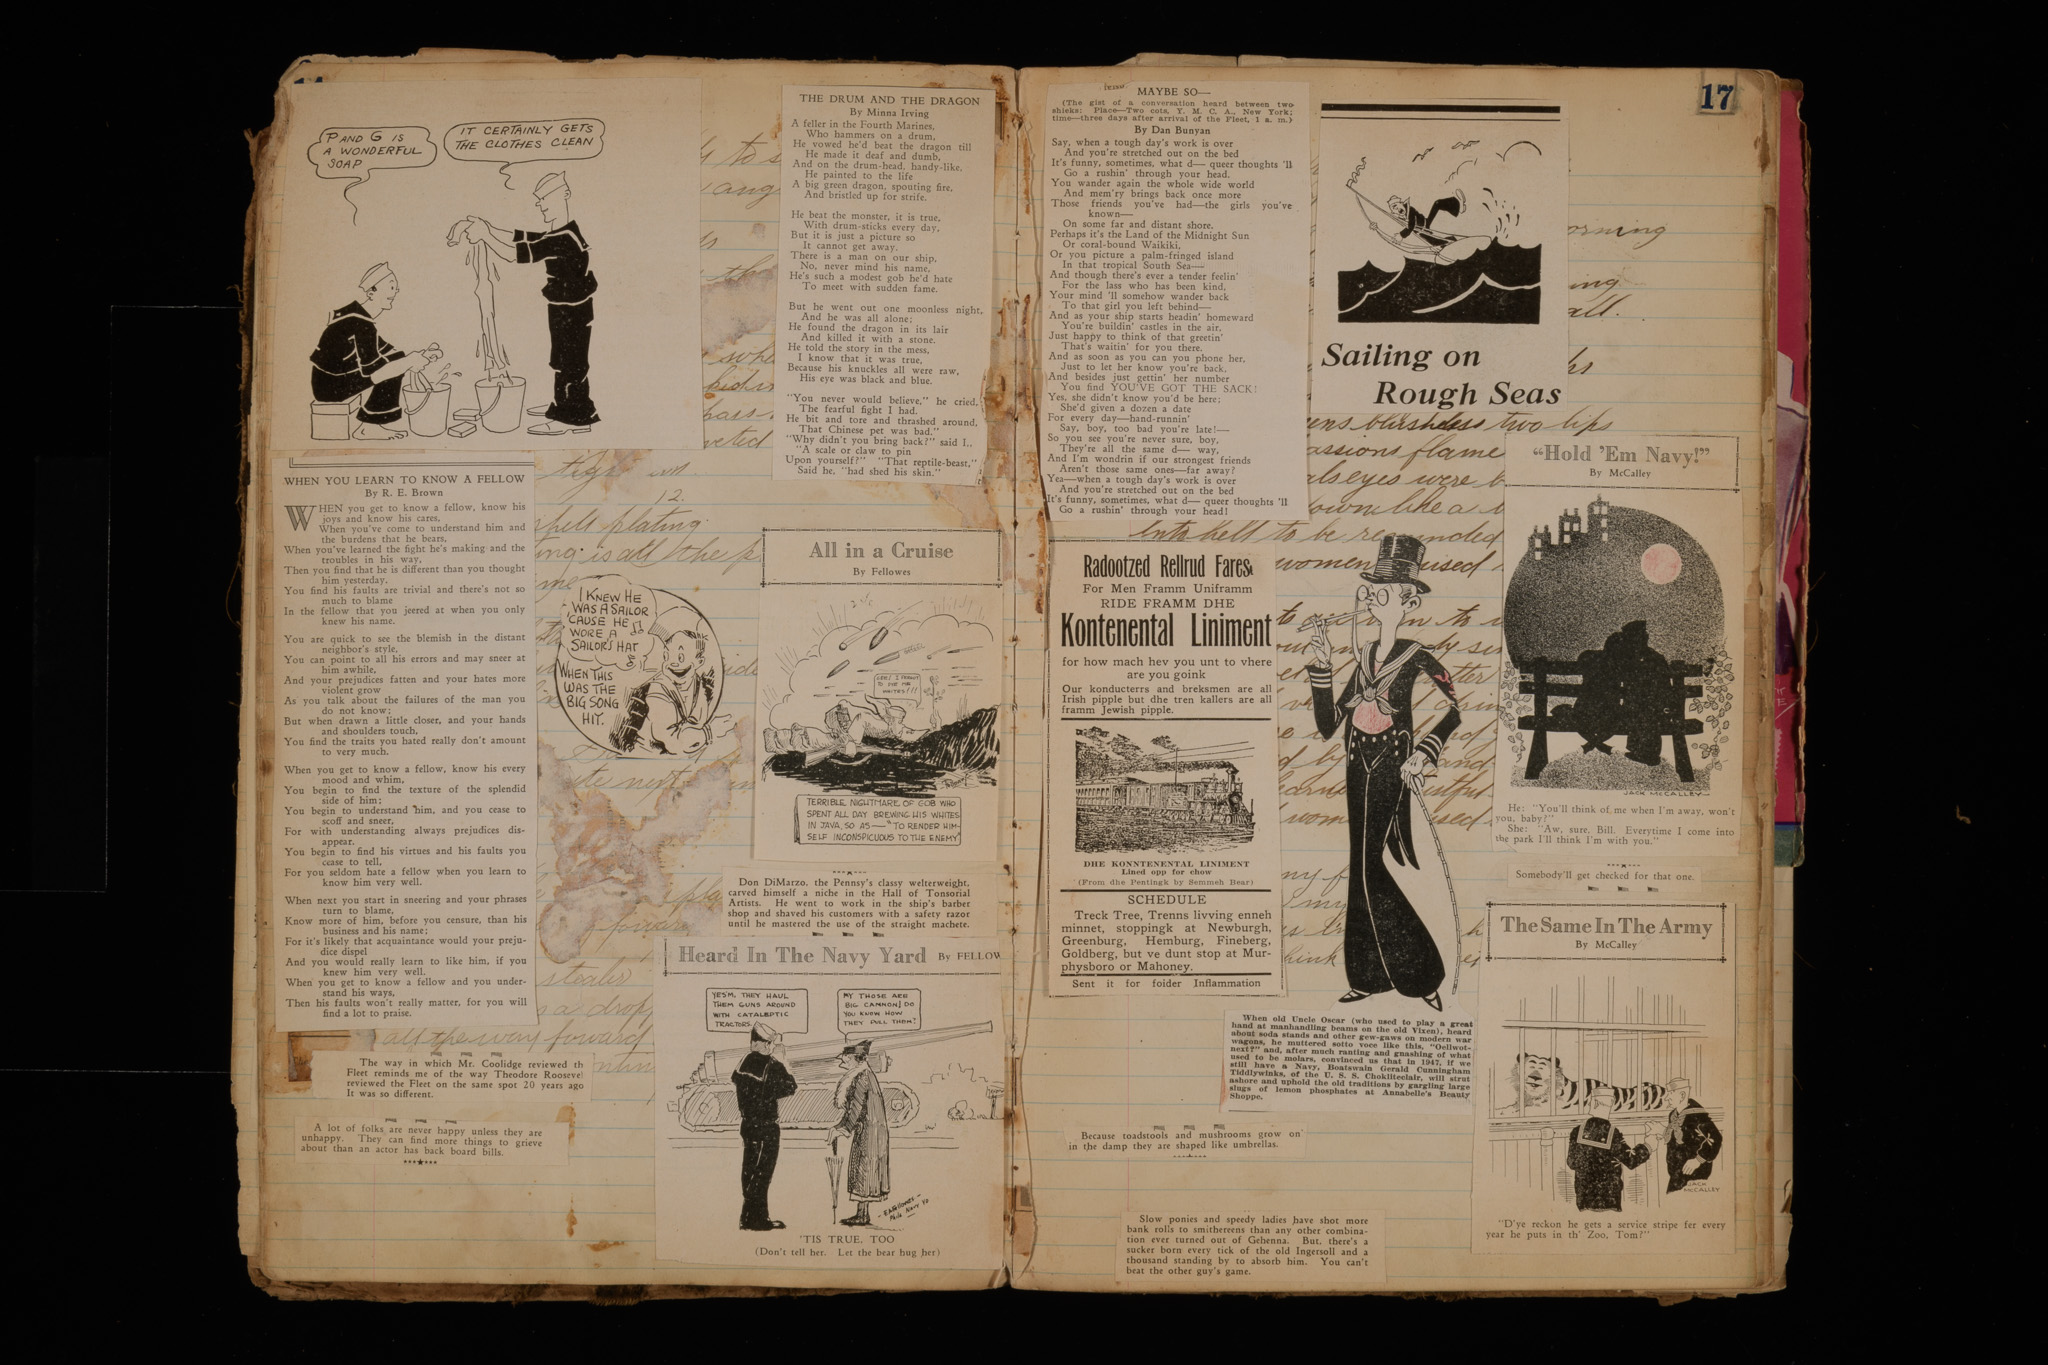 P AND G IS
A WONDERFUL
SOAP
IT CERTAINLY GETS
THE CLOTHES CLEAN
WHEN YOU LEARN TO KNOW A FELLOW
By R. E. Brown
WHEN you get to know a fellow, know his
joys and know his cares,
When you've come to understand him and
the burdens that he bears,
When you've learned the fight he's making and the
troubles in his way,
Then you find that he is different than you thought
him yesterday.
You find his faults are trivial and there's not so
much to blame
In the fellow that you jeered at when you only
knew his name.
You are quick to see the blemish in the distant
neighbor's style,
You can point to all his errors and may sneer at
him awhile,
And your prejudices fatten and your hates more
violent grow
As you talk about the failures of the man you
do not know;
But when drawn a little closer, and your hands
and shoulders touch,
You find the traits you hated really don't amount
to very much.
When you get to know a fellow, know his every
mood and whim,
You begin to find the texture of the splendid
side of him;
You begin to understand him, and you cease to
scoff and sneer,
For with understanding always prejudices dis-
appear.
You begin to find his virtues and his faults you
cease to tell,
For you seldom hate a fellow when you learn to
know him very well.
When next you start in sneering and your phrases
turn to blame,
Know more of him, before you censure, than his
business and his name;
For it's likely that acquaintance would your preju-
dice dispel
And you would really learn to like him, if you
knew him very well.
When you get to know a fellow and you under-
stand his ways,
Then his faults won't really matter, for you will
find a lot to praise.
all the way forward
The way in which Mr. Coolidge reviewed th
Fleet reminds me of the way Theodore Roosevel
reviewed the Fleet on the same spot 20 years ago
It was so different.
A lot of folks are never happy unless they are
unhappy. They can find more things to grieve
about than an actor has back board bills.
THE DRUM AND THE DRAGON
By Minna Irving
A feller in the Fourth Marines,
Who hammers on a drum,
He vowed he'd beat the dragon till
He made it deaf and dumb,
And on the drum-head, handy-like,
He painted to the life
A big green dragon, spouting fire,
And bristled up for strife.
He beat the monster, it is true,
With drum-sticks every day,
But it is just a picture so
It cannot get away.
There is a man on our ship,
No, never mind his name,
He's such a modest gob he'd hate
To meet with sudden fame.
But he went out one moonless night,
And he was all alone;
He found the dragon in its lair
And killed it with a stone.
He told the story in the mess,
I know that it was true,
Because his knuckles all were raw,
His eye was black and blue.
"You never would believe," he cried,
The fearful fight I had.
He bit and tore and thrashed around,
That Chinese pet was bad."
"Why didn't you bring back?" said I..
"A scale or claw to pin
Upon yourself?" "That reptile-beast,"
Said he, "had shed his skin."
12.
shell plating.
I KNEW HE
WAS A SAILOR
'CAUSE HE
WORE A
SAILOR'S HAT
WHEN THIS
WAS THE
BIG SONG
HIT.
All in a Cruise
By Fellowes
TERRIBLE NIGHTMARE OF GOB WHO
SPENT ALL DAY BREWING HIS WHITES
IN JAVA, SO AS — "TO RENDER HIM-
SELF INCONSPICUOUS TO THE ENEMY"
Don DiMarzo, the Pennsy's classy welterweight,
carved himself a niche in the Hall of Tonsorial
Artists. He went to work in the ship's barber
shop and shaved his customers with a safety razor
until he mastered the use of the straight machete.
Heard In The Navy Yard By FELLOW
YES'M, THEY HAUL
THEM GUNS AROUND
WITH CATALEPTIC
TRACTORS
MY THOSE ARE
BIG CANNON! DO
YOU KNOW HOW
THEY PULL THEM?
'TIS TRUE, TOO
(Don't tell her. Let the bear hug her)
MAYBE SO—
(The gist of a conversation heard between two
shieks: Place—Two cots, Y. M. C. A., New York;
time—three days after arrival of the Fleet, 1 a. m.)
By Dan Bunyan
Say, when a tough day's work is over
And you're stretched out on the bed
It's funny, sometimes, what d— queer thoughts 'll
Go a rushin' through your head.
You wander again the whole wide world
And mem'ry brings back once more
Those friends you've had—the girls you've
known—
On some far and distant shore.
Perhaps it's the Land of the Midnight Sun
Or coral-bound Waikiki,
Or you picture a palm-fringed island
In that tropical South Sea—
And though there's ever a tender feelin'
For the lass who has been kind,
Your mind 'll somehow wander back
To that girl you left behind—
And as your ship starts headin' homeward
You're buildin' castles in the air,
Just happy to think of that greetin'
That's waitin' for you there.
And as soon as you can you phone her,
Just to let her know you're back,
And besides just gettin' her number
You find YOU'VE GOT THE SACK!
Yes, she didn't know you'd be here;
She'd given a dozen a date
For every day—hand-runnin'
Say, boy, too bad you're late!—
So you see you're never sure, boy,
They're all the same d— way,
And I'm wondrin if our strongest friends
Aren't those same ones—far away?
Yea—when a tough day's work is over
And you're stretched out on the bed
It's funny, sometimes, what d— queer thoughts 'll
Go a rushin' through your head!
17
Sailing on
Rough Seas
two lips
assions flame
into hell to be
Radootzed Rellrud Fares
For Men Framm Uniframm
RIDE FRAMM DHE
Kontenental Liniment
for how mach hev you unt to vhere
are you goink
Our konducterrs and breksmen are all
Irish pipple but dhe tren kallers are all
framm Jewish pipple.
DHE KONNTENENTAL LINIMENT
Lined opp for chow
(From dhe Pentingk by Semmeh Bear)
SCHEDULE
Treck Tree, Trenns livving enneh
minnet, stoppingk at Newburgh,
Greenburg, Hemburg, Fineberg,
Goldberg, but ve dunt stop at Mur-
physboro or Mahoney.
Sent it for foider Inflammation
When old Uncle Oscar (who used to play a great
hand at manhandling beams on the old Vixen), heard
about soda stands and other gew-gaws on modern war
wagons, he muttered sotto voce like this, "Oellwot-
next?" and, after much ranting and gnashing of what
used to be molars, convinced us that in 1947, if we
still have a Navy, Boatswain Gerald Cunningham
Tiddlywinks, of the U. S. S. Chokliteclair, will strut
ashore and uphold the old traditions by gargling large
slugs of lemon phosphates at Annabelle's Beauty
Shoppe.
Because toadstools and mushrooms grow on
in the damp they are shaped like umbrellas.
Slow ponies and speedy ladies have shot more
bank rolls to smithereens than any other combina-
tion ever turned out of Gehenna. But, there's a
sucker born every tick of the old Ingersoll and a
thousand standing by to absorb him. You can't
beat the other guy's game.
"Hold 'Em Navy!"
By McCalley
JACK McCALLEY
He: "You'll think of me when I'm away, won't
you, baby?"
She: "Aw, sure, Bill. Everytime I come into
the park I'll think I'm with you."
Somebody'll get checked for that one.
The Same In The Army
By McCalley
JACK
McCALLEY
"D'ye reckon he gets a service stripe fer every
year he puts in th' Zoo, Tom?"